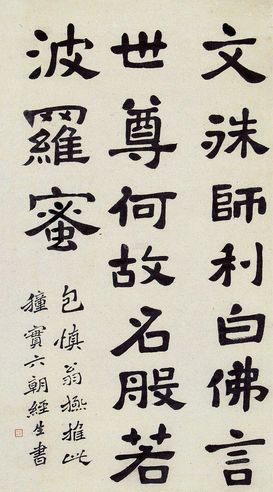 文殊師利白佛言
世尊何故名般若
波羅蜜
包慎翁極推此
穜實六朝經生書